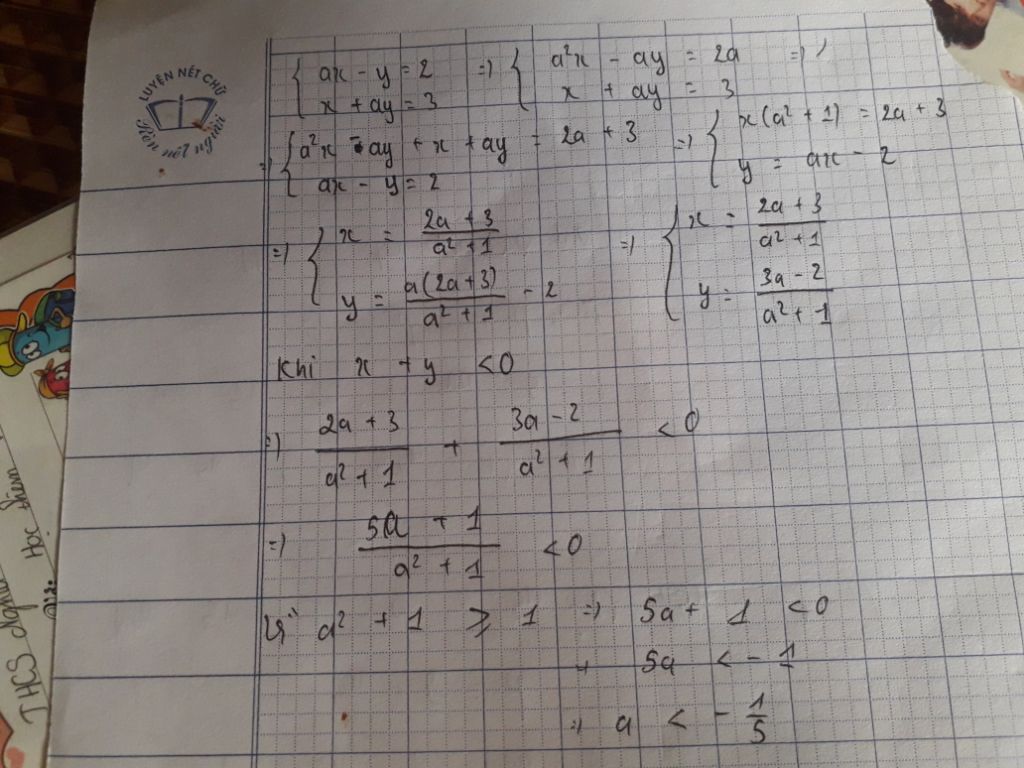 LUYỆN NÉT CHỮ
Rèn nết người
{ ax - y = 2 => { a²x - ay = 2a =>
{ x + ay = 3 { x + ay = 3
=> { a²x - ay + x + ay = 2a + 3 => { x(a² + 1) = 2a + 3
{ ax - y = 2 { y = ax - 2
=> { x = (2a + 3)/(a² + 1) => { x = (2a + 3)/(a² + 1)
{ y = a(2a + 3)/(a² + 1) - 2 { y = (3a - 2)/(a² + 1)
Khi x + y < 0
=> (2a + 3)/(a² + 1) + (3a - 2)/(a² + 1) < 0
=> (5a + 1)/(a² + 1) < 0
Vì a² + 1 ≥ 1 => 5a + 1 < 0
=> 5a < - 1
=> a < - 1/5
THCS
Học